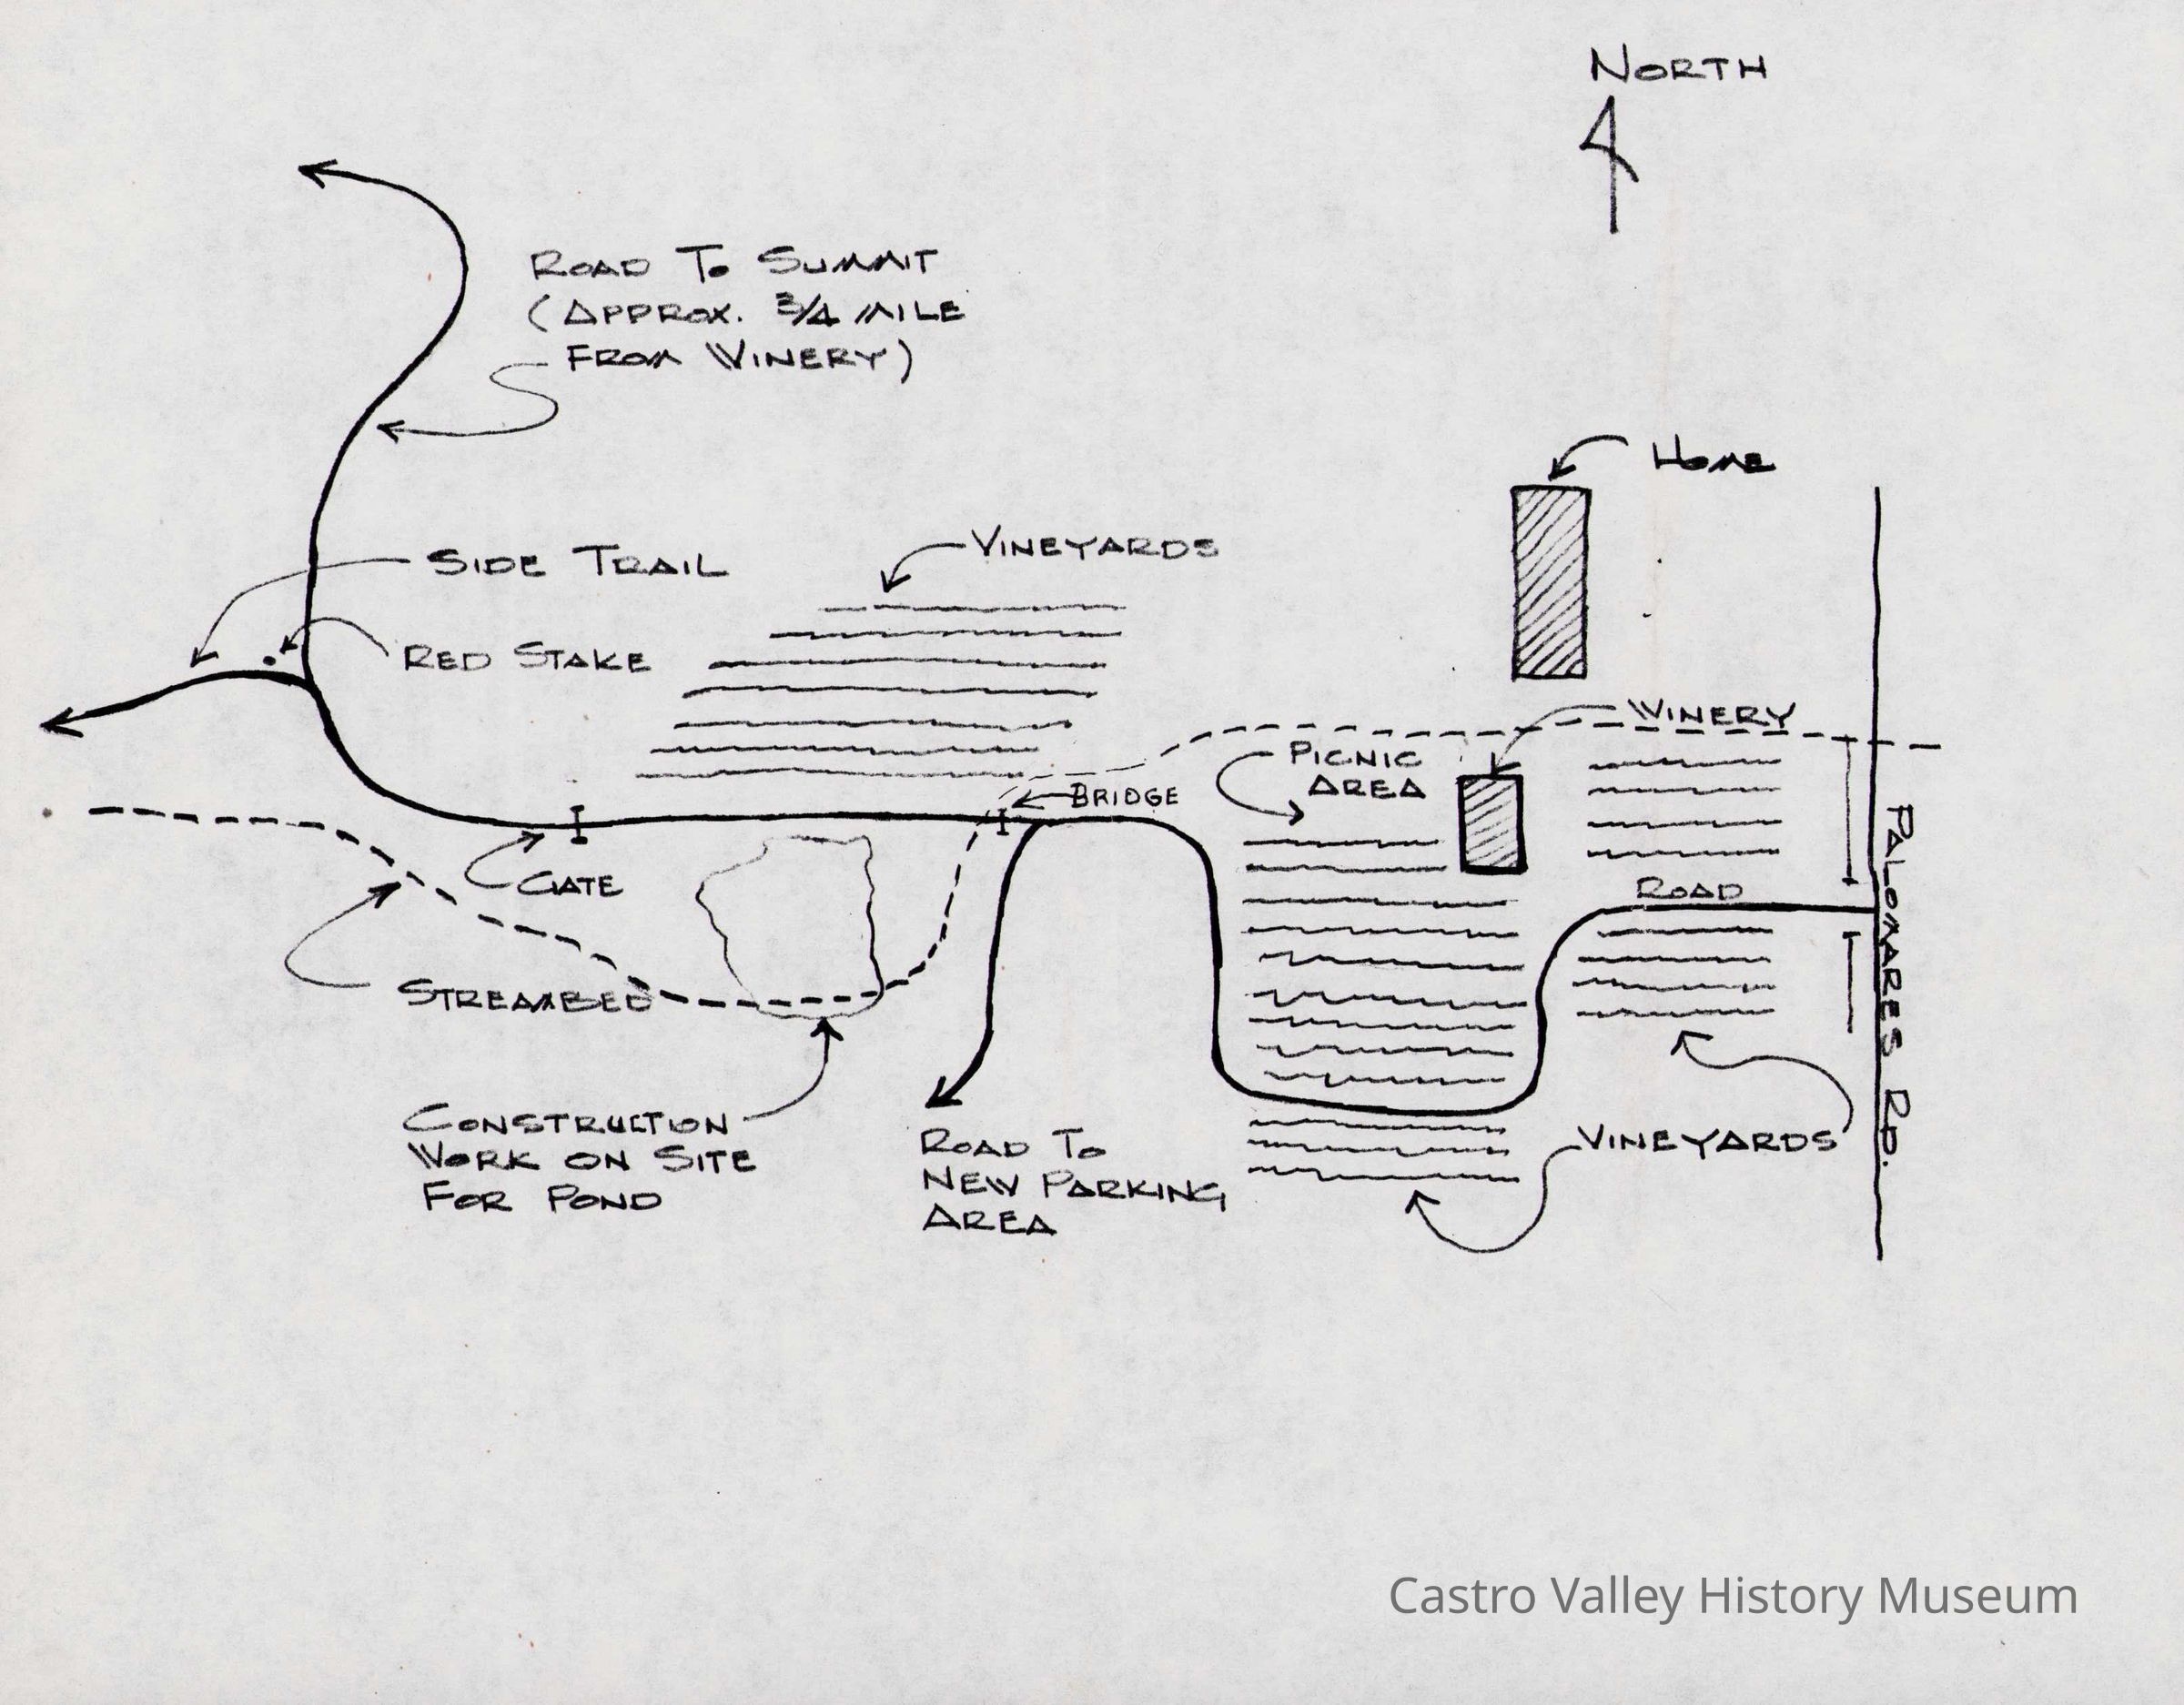 NORTH
ROAD TO SUMMIT
(APPROX. 3/4 MILE
FROM WINERY)
HOME
SIDE TRAIL
VINEYARDS
RED STAKE
WINERY
PICNIC
AREA
BRIDGE
GATE
ROAD
PALOMARES RD.
STREAMBED
CONSTRUCTION
WORK ON SITE
FOR POND
ROAD TO
NEW PARKING
AREA
VINEYARDS
Castro Valley History Museum